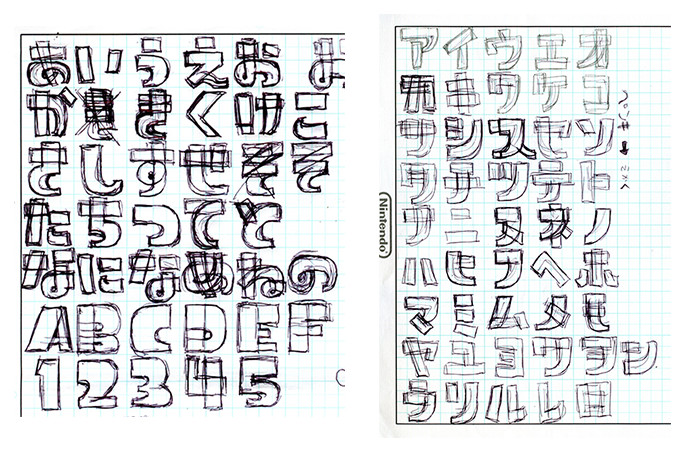 あいうえお
かききくけこ
さしすせそそ
たちつてと
なになぬねの
ABCDEF
12345
Nintendo
アイウエオ
カキクケコ
サシスセソ
タチツテト
ナニヌネノ
ハヒフヘホ
マミムメモ
ヤユヨワヲン
ラリルレロ